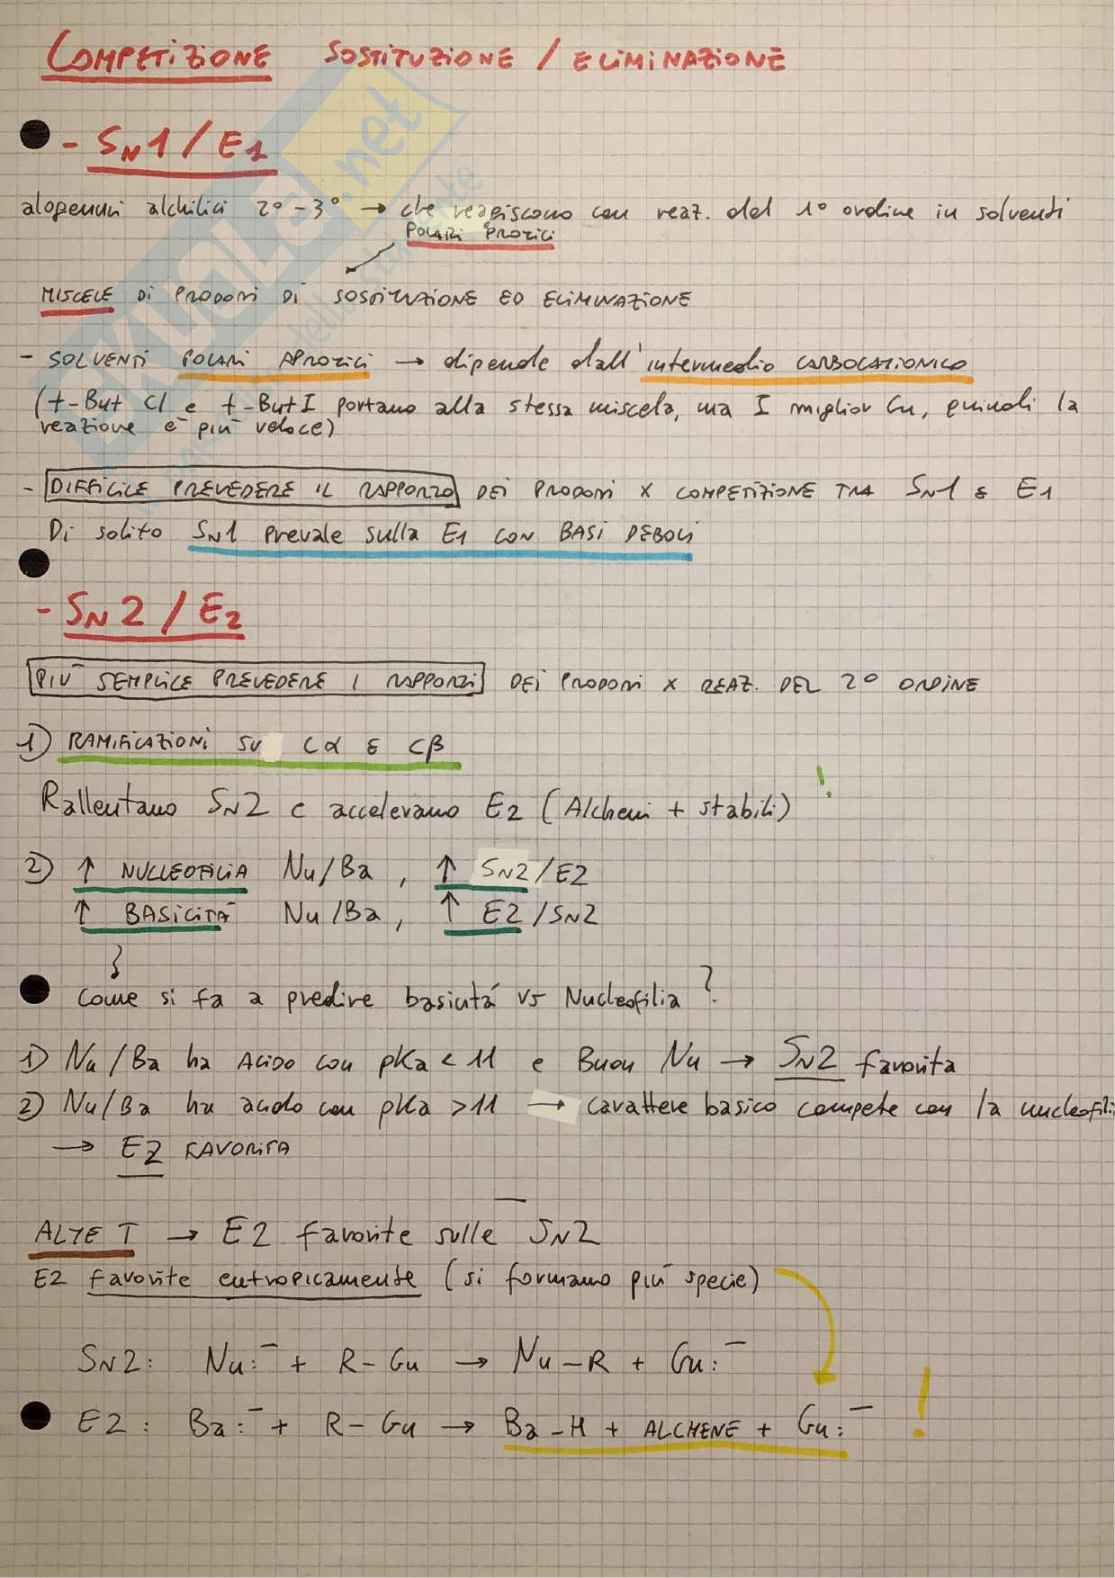 COMPETIZIONE SOSTITUZIONE / ELIMINAZIONE
- SN1 / E1
alogenuri alchilici 2° - 3° → che reagiscono con reaz. del 1° ordine in solventi
POLARI PROTICI
MISCELE DI PRODOTTI DI SOSTITUZIONE ED ELIMINAZIONE
- SOLVENTI POLARI APROTICI → dipende dall'intermedio CARBOCATIONICO
(t-But Cl e t-But I portano alla stessa miscela, ma I miglior Gu, quindi la
reazione è più veloce)
- DIFFICILE PREVEDERE IL RAPPORTO DEI PRODOTTI X COMPETIZIONE TRA SN1 E E1
Di solito SN1 prevale sulla E1 CON BASI DEBOLI
- SN2 / E2
PIÙ SEMPLICE PREVEDERE I RAPPORTI DEI PRODOTTI X REAZ. DEL 2° ORDINE
1) RAMIFICAZIONI SU Cα E Cβ
Rallentano SN2 e accelerano E2 (Alcheni + stabili) !
2) ↑ NUCLEOFILIA Nu/Ba , ↑ SN2/E2
↑ BASICITÀ Nu/Ba , ↑ E2/SN2
Come si fa a predire basicità vs Nucleofilia ?
1) Nu/Ba ha Acido con pKa < 11 e Buon Nu → SN2 favorita
2) Nu/Ba ha acido con pKa > 11 → carattere basico compete con la nucleofili
→ E2 FAVORITA
ALTE T → E2 favorite sulle SN2
E2 favorite entropicamente (si formano più specie)
SN2: Nu:⁻ + R-Gu → Nu-R + Gu:⁻
E2: Ba:⁻ + R-Gu → Ba-H + ALCHENE + Gu:⁻ !